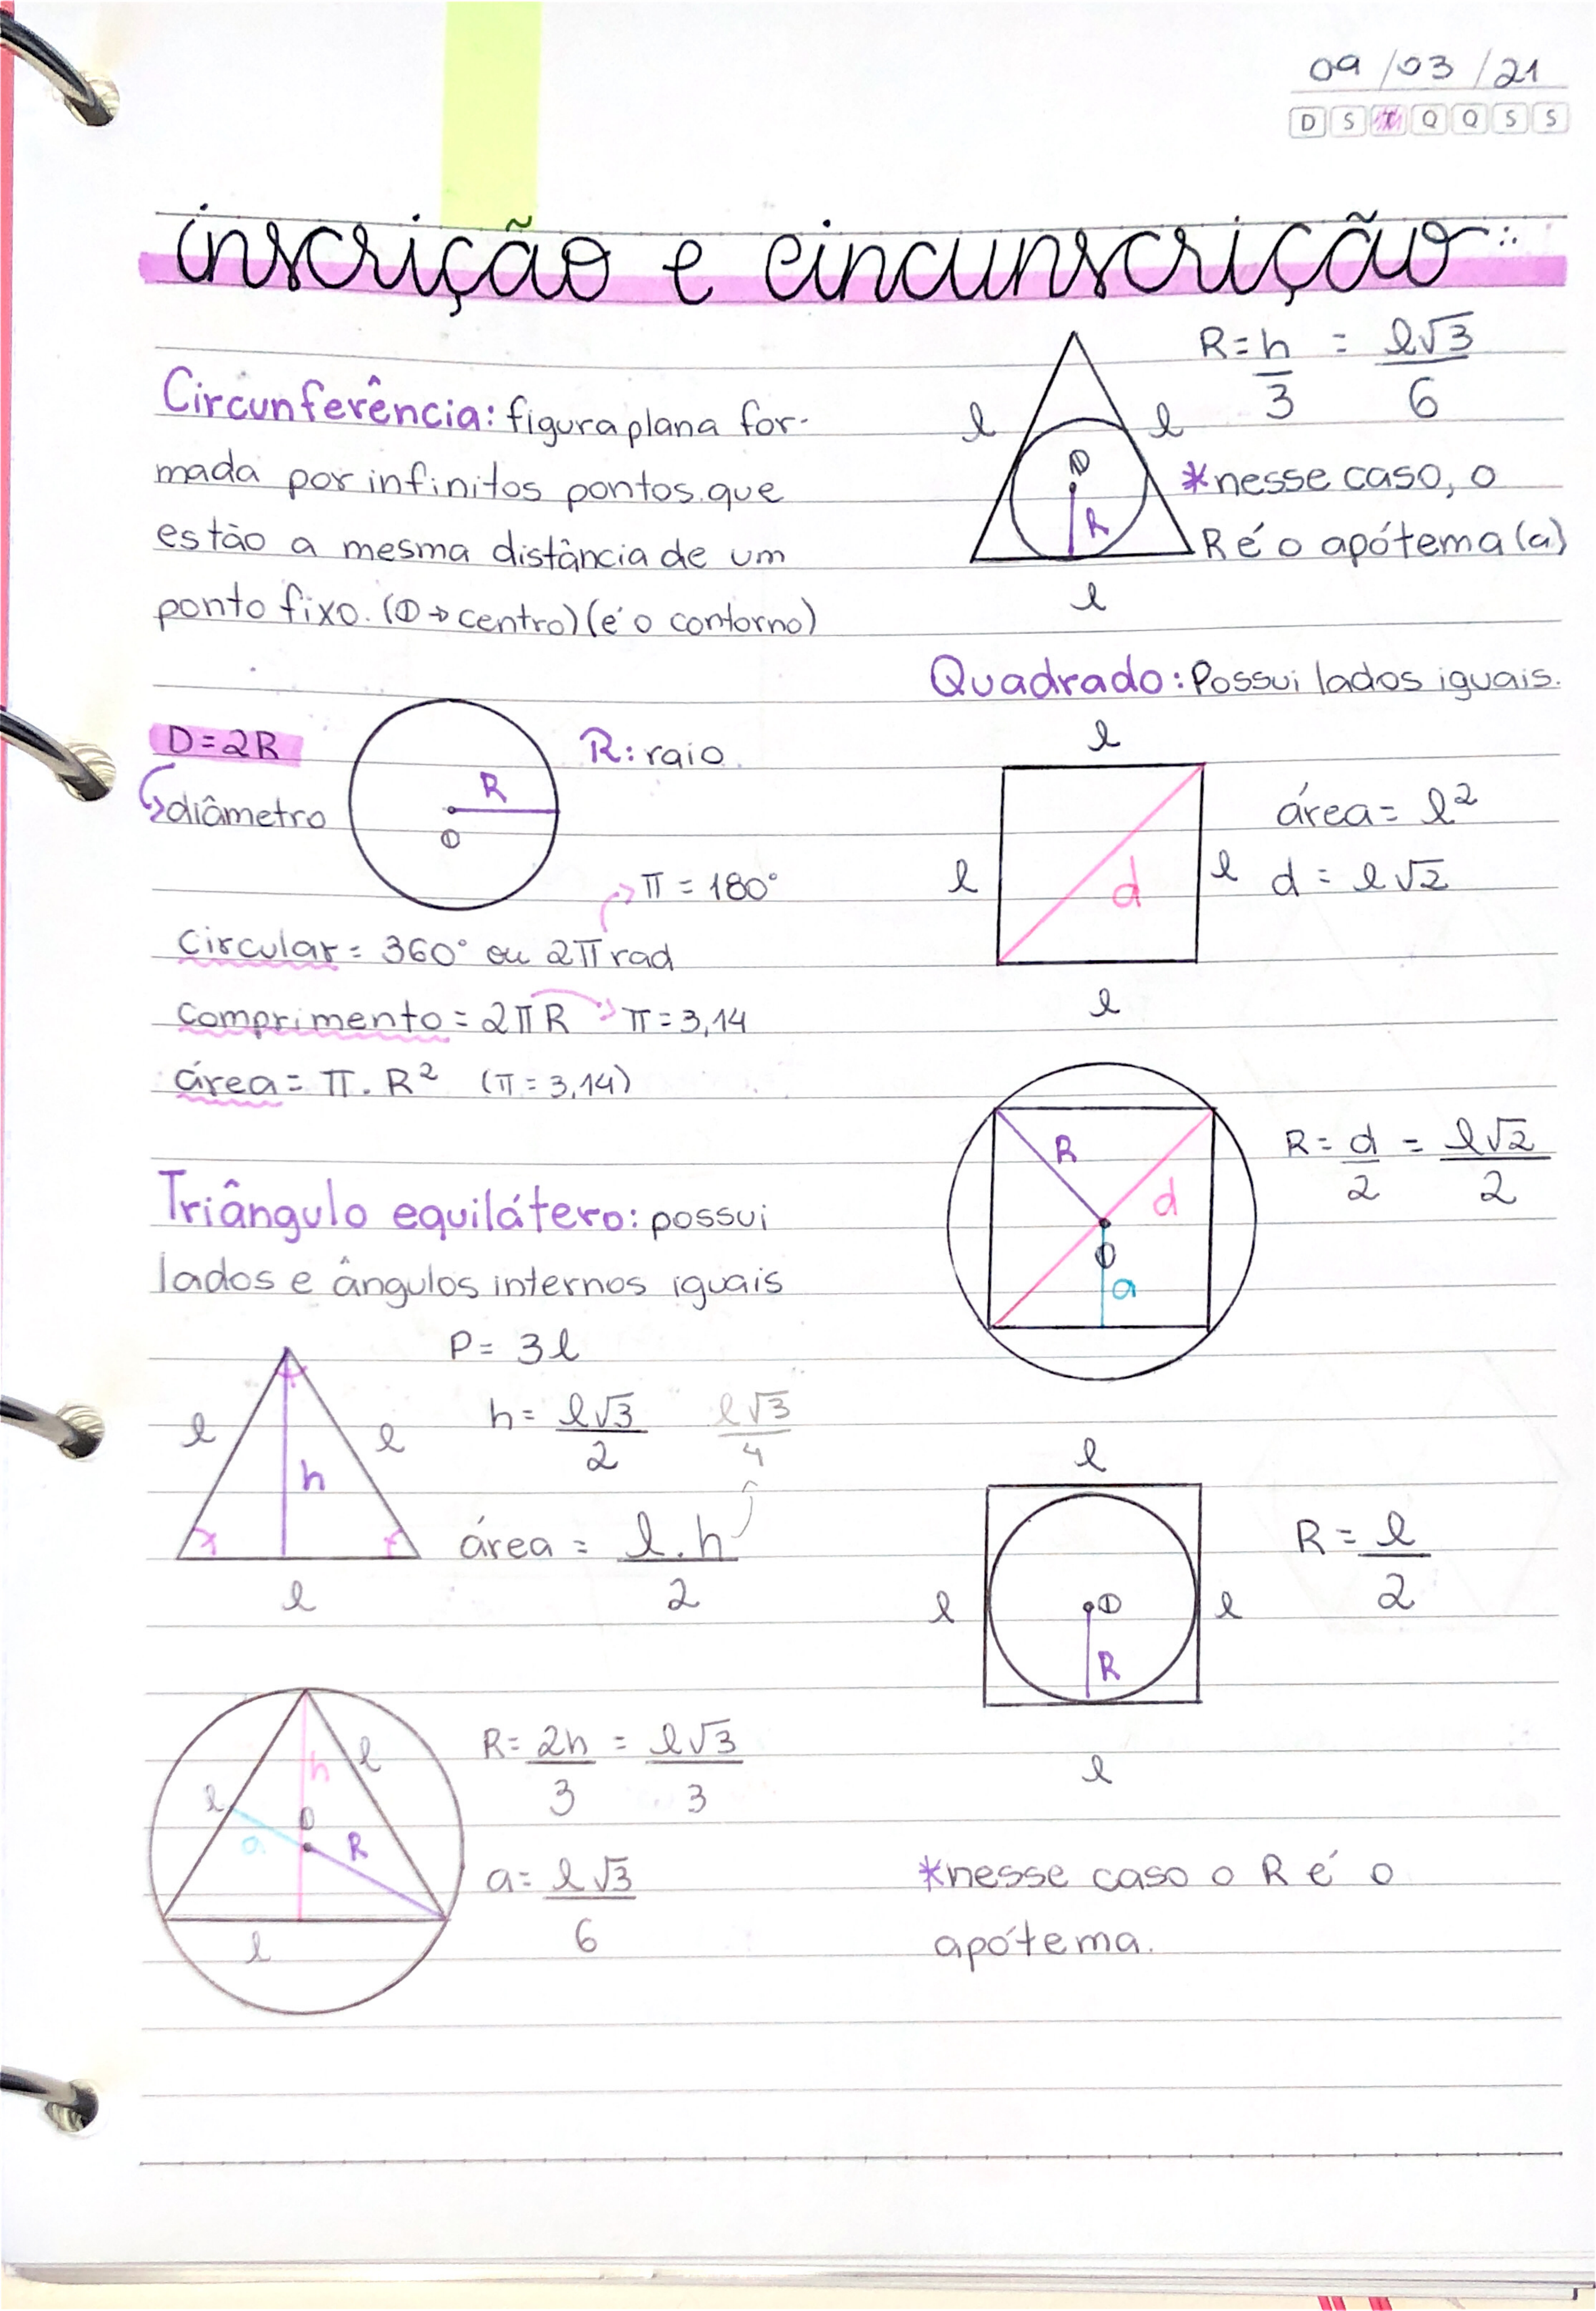 09/03/21
D S T Q Q S S
inscrição e circunscrição
Circunferência: figura plana for-
mada por infinitos pontos que
estão a mesma distância de um
ponto fixo. (O → centro) (é o contorno)
D=2R
diâmetro
R
O
R: raio
π = 180°
circular = 360° ou 2π rad
comprimento = 2πR → π = 3,14
área = π . R² (π = 3,14)
Triângulo equilátero: possui
lados e ângulos internos iguais
P = 3l
l l
h
l
h = l√3/2 l√3/4
área = l.h/2
h l
l O
a R
l
R = 2h/3 = l√3/3
a = l√3/6
R = h/3 = l√3/6
l l
O
R
l
*nesse caso, o
R é o apótema (a)
Quadrado: Possui lados iguais.
l
l d l
l
área = l²
d = l√2
R
d
O
a
R = d/2 = l√2/2
l
l O l
R
l
R = l/2
*nesse caso o R é o
apótema.